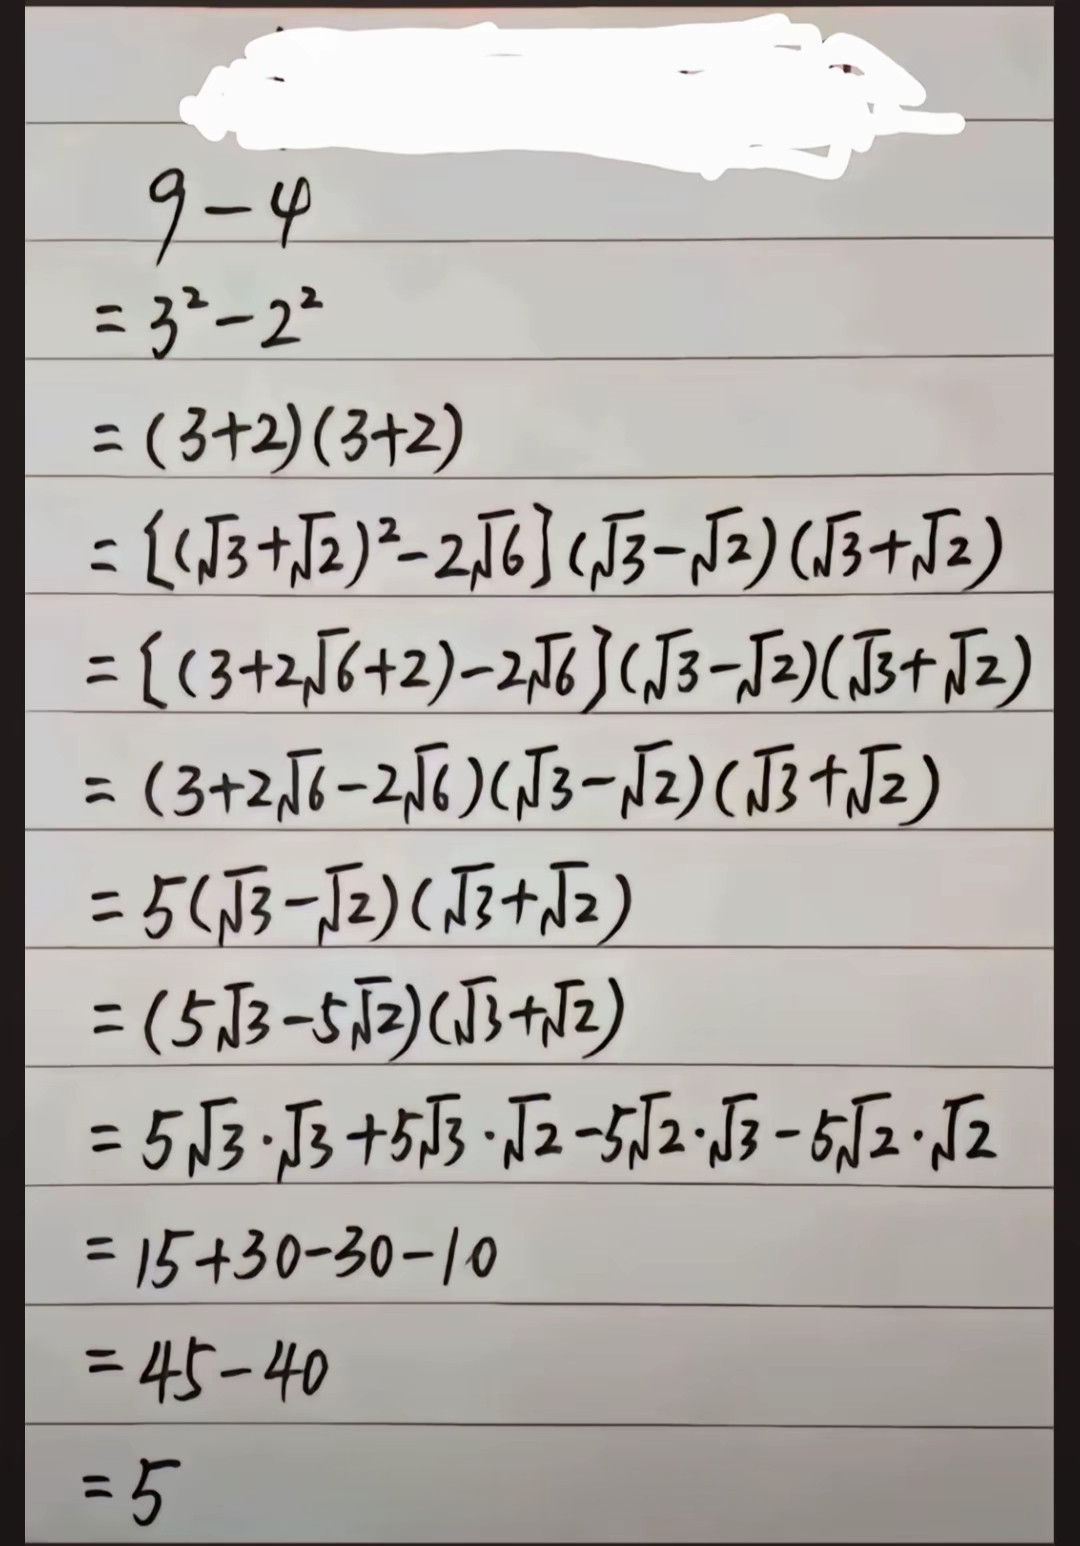 9-4
=3²-2²
=(3+2)(3+2)
=[(√3+√2)²-2√6](√3-√2)(√3+√2)
=[(3+2√6+2)-2√6](√3-√2)(√3+√2)
=(3+2√6-2√6)(√3-√2)(√3+√2)
=5(√3-√2)(√3+√2)
=(5√3-5√2)(√3+√2)
=5√3·√3+5√3·√2-5√2·√3-5√2·√2
=15+30-30-10
=45-40
=5